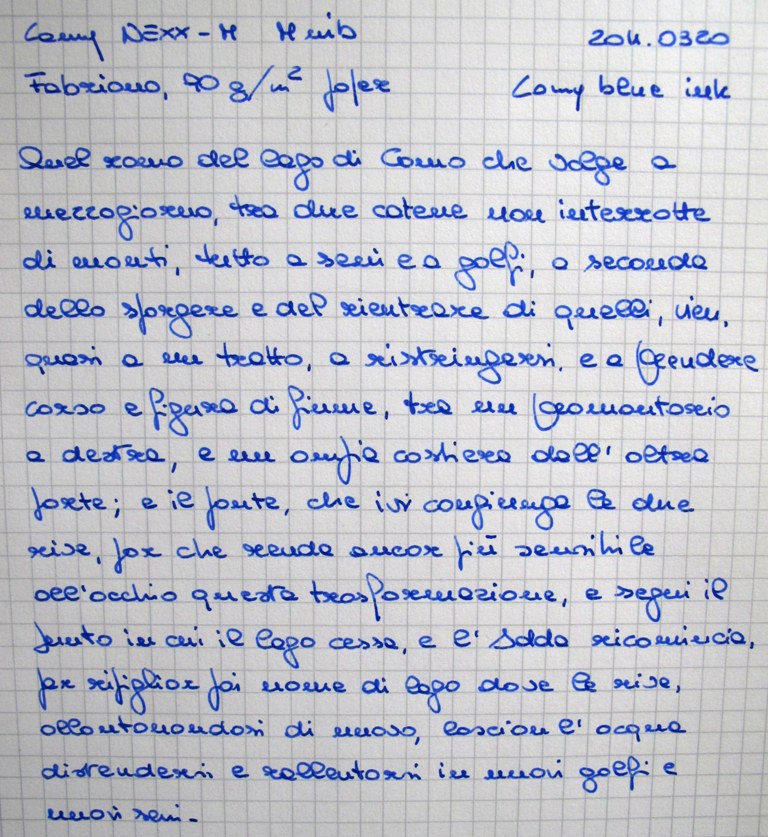 Lamy NEXX-M M nib 2011.0320
Fabriano, 90 g/m² paper Lamy blue ink
Quel ramo del lago di Como che volge a
mezzogiorno, tra due catene non interrotte
di monti, tutto a seni e a golfi, a seconda
dello sporgere e del rientrare di quelli, vien,
quasi a un tratto, a ristringersi, e a prendere
corso e figura di fiume, tra un promontorio
a destra, e un ampia costiera dall' altra
parte; e il ponte, che ivi congiunge le due
rive, par che renda ancor più sensibile
all'occhio questa trasformazione, e segni il
punto in cui il lago cessa, e l' Adda ricomincia,
per ripigliar poi nome di lago dove le rive,
allontanandosi di nuovo, lascian l' acqua
distendersi e rallentarsi in nuovi golfi e
nuovi seni.